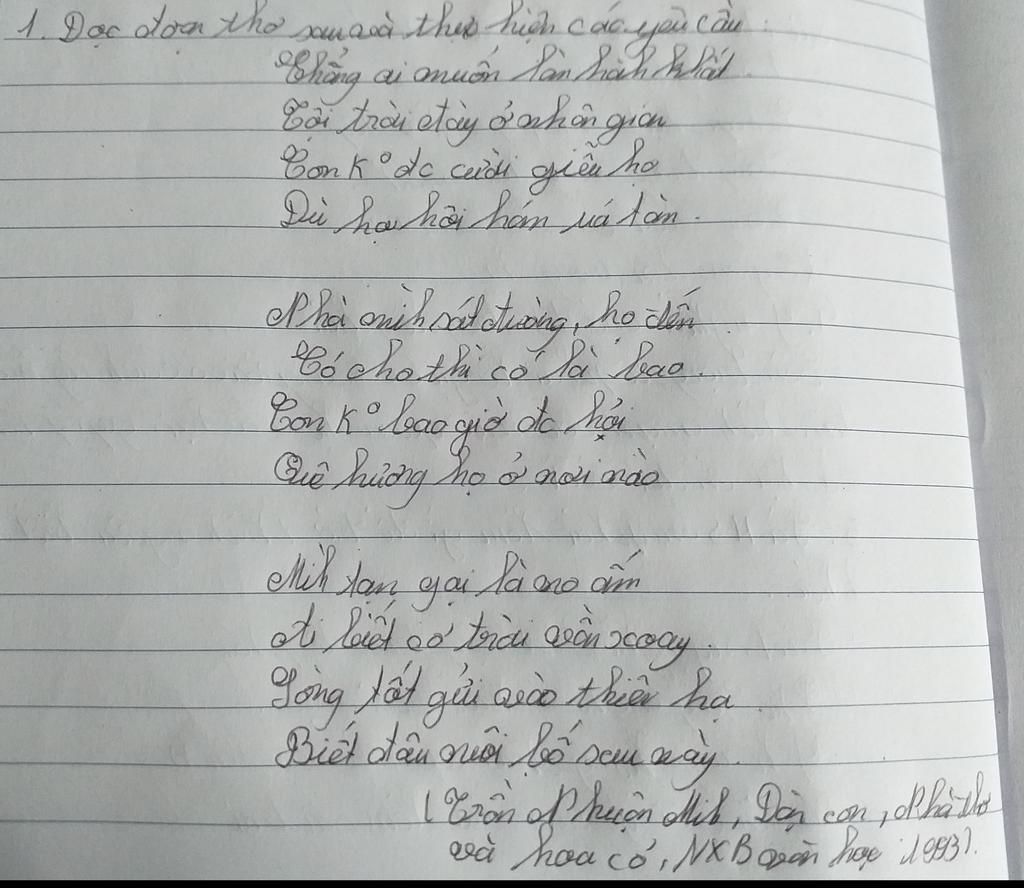 1. Đọc đoạn thơ sau và thực hiện các yêu cầu :
Chẳng ai muốn làm hành khất
Tội trời đày ở nhân gian
Con k° đc cười giễu họ
Dù họ hôi hám úa tàn.
Nhà mình sát đường, họ đến
Có cho thì có là bao.
Con k° bao giờ đc hỏi
Quê hương họ ở nơi nào
Mình tạm gọi là no ấm
Ai biết cơ trời vần xoay.
Lòng tốt gửi vào thiên hạ
Biết đâu nuôi bố sau này.
(Trần Nhuận Minh, Dặn con, Nhà thơ
và hoa cỏ, NXB văn học 1993).